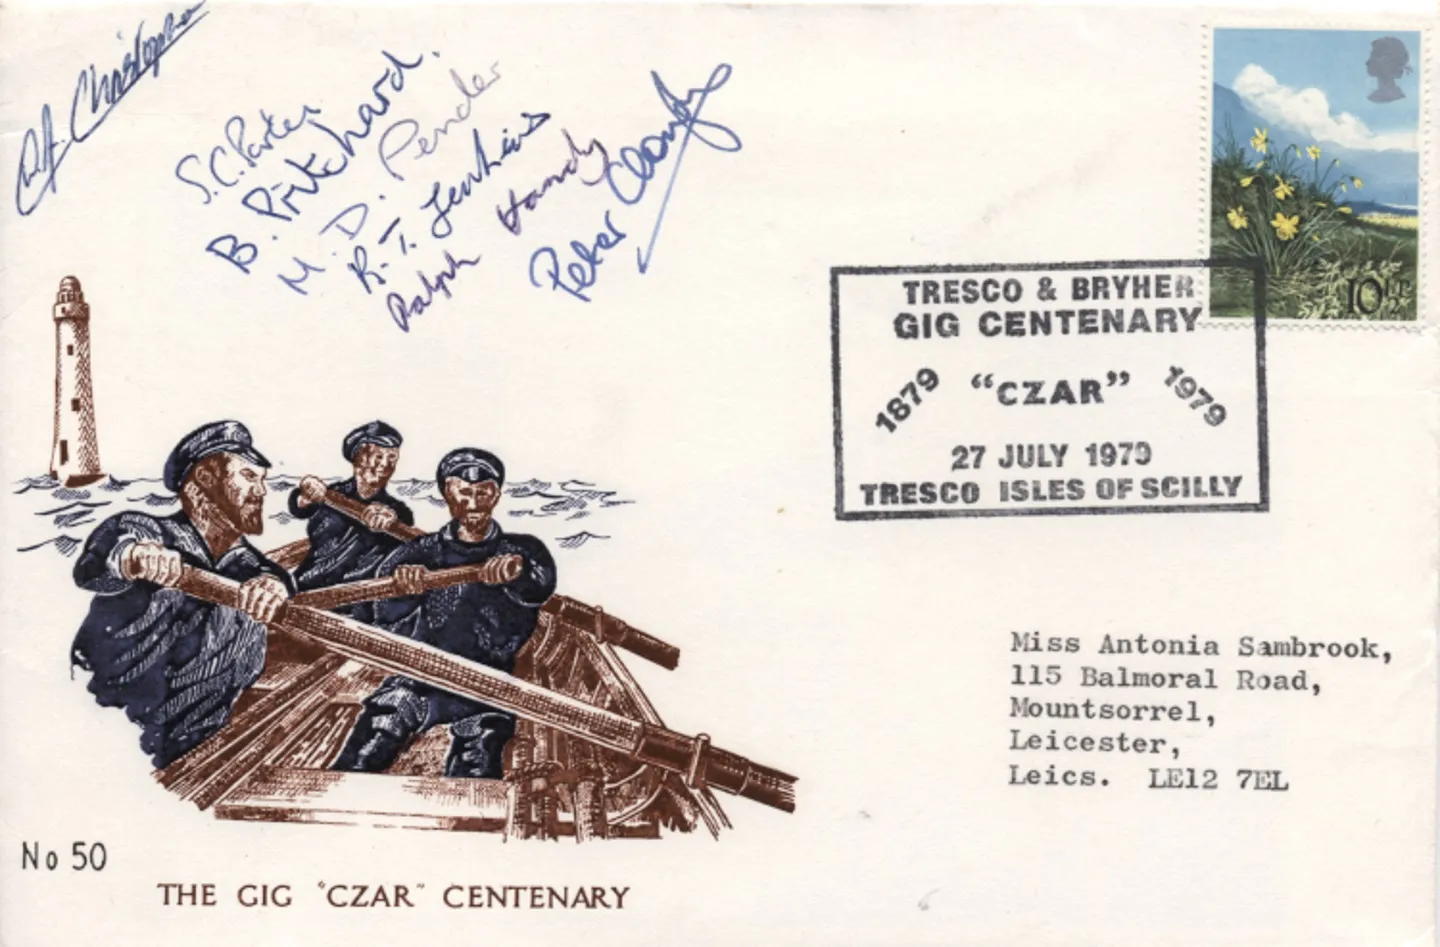 Christopher
S.C. Parker
B. Pritchard.
M. D. Pender
R.T. Jenkins
Ralph Handy
Peter
10½P
TRESCO & BRYHER
GIG CENTENARY
1879 "CZAR" 1979
27 JULY 1979
TRESCO ISLES OF SCILLY
Miss Antonia Sambrook,
115 Balmoral Road,
Mountsorrel,
Leicester,
Leics. LE12 7EL
No 50
THE GIG "CZAR" CENTENARY